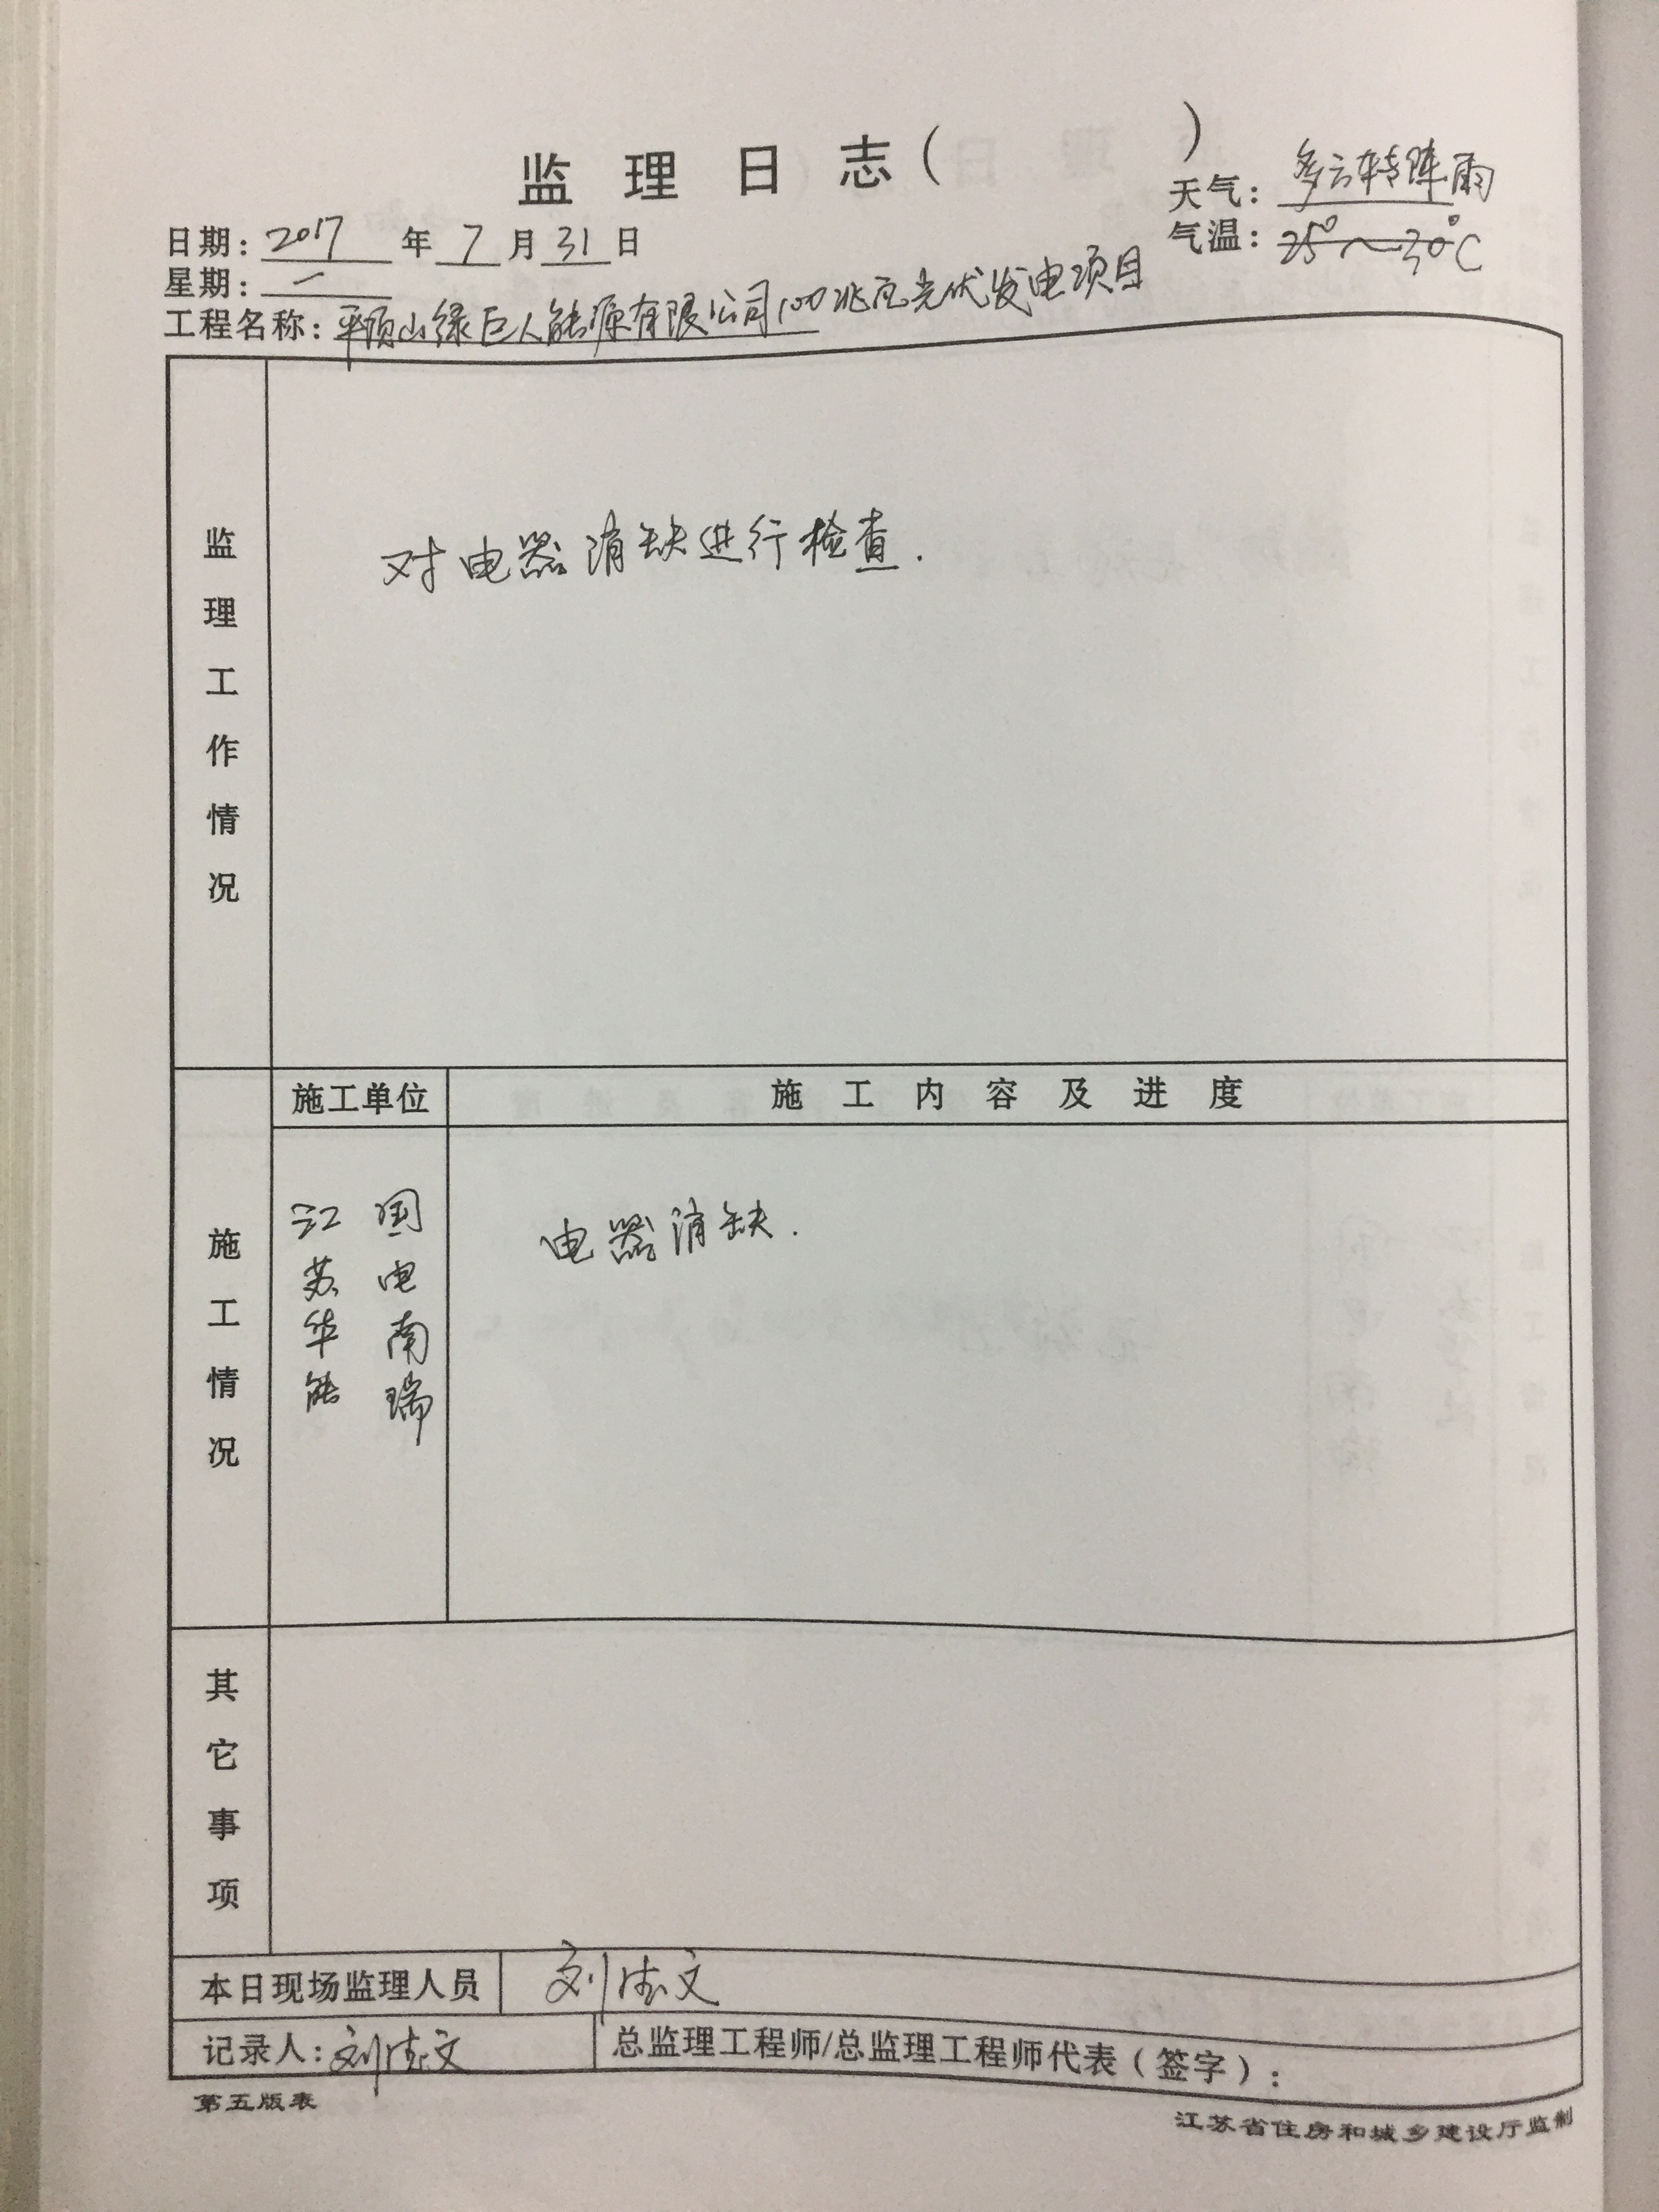 监理日志（ ）
天气：多云转阵雨
日期：2017年7月31日
气温：25°~30°C
星期：一
工程名称：平顶山绿巨人能源有限公司100兆瓦光伏发电项目
监理工作情况
对电器消缺进行检查.
施工单位 施工内容及进度
施工情况
江苏华能
国电南瑞
电器消缺.
其它事项
本日现场监理人员 刘 文
记录人：刘 文
总监理工程师/总监理工程师代表（签字）：
第五版表
江苏省住房和城乡建设厅监制